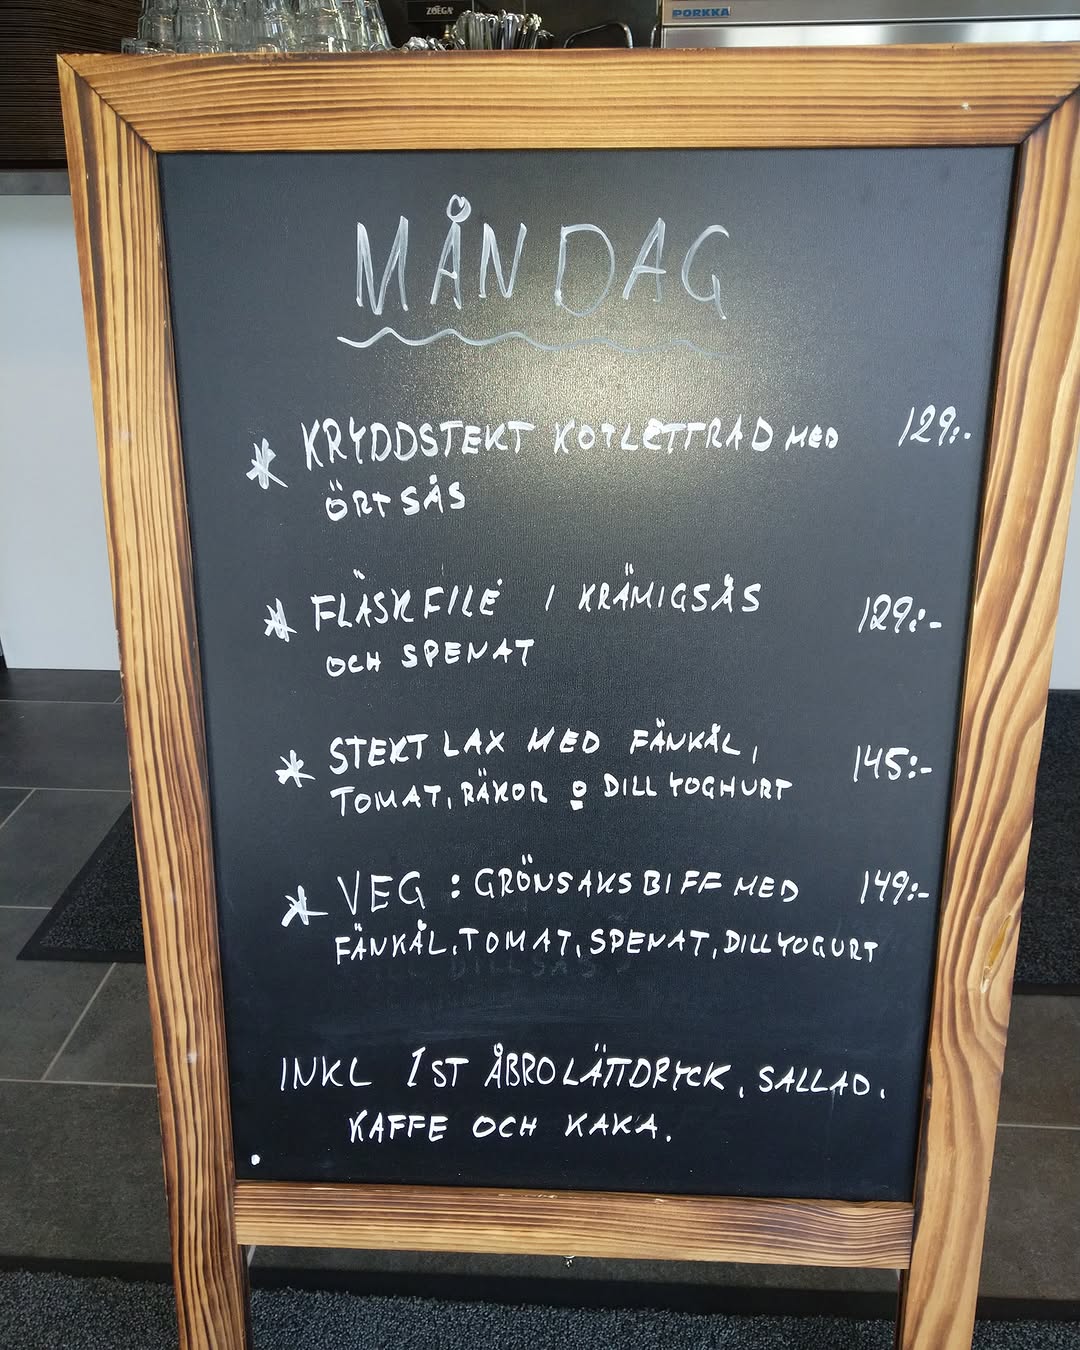 ZOÉGA
PORKKA
MÅNDAG
* KRYDDSTEKT KOTLETTRAD MED 129:-
ÖRTSÅS
* FLÄSKFILÉ I KRÄMIGSÅS 129:-
OCH SPENAT
* STEKT LAX MED FÄNKÅL, 145:-
TOMAT, RÄKOR o DILLYOGHURT
* VEG : GRÖNSAKSBIFF MED 149:-
FÄNKÅL, TOMAT, SPENAT, DILLYOGURT
INKL 1ST ÅBRO LÄTTDRYCK, SALLAD,
KAFFE OCH KAKA.